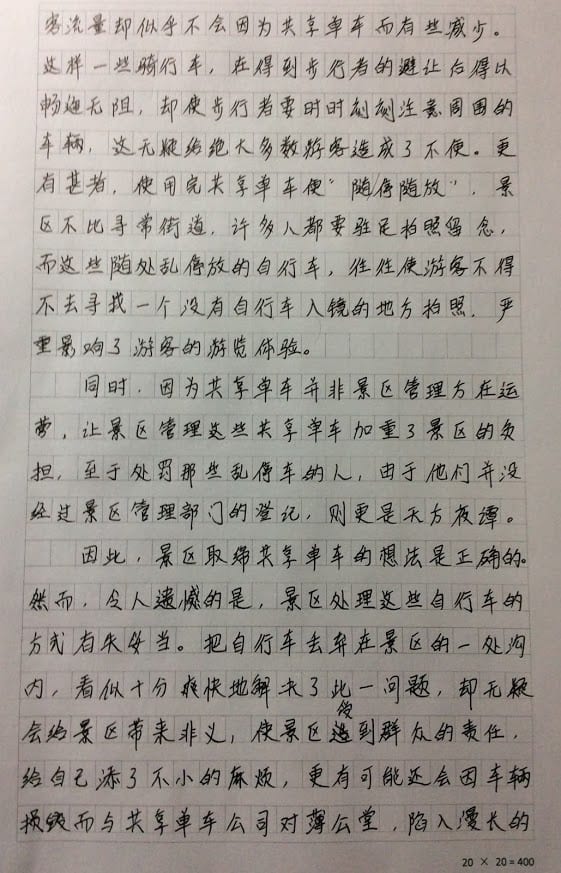 客流量却似乎不会因为共享单车而有些减少。
这样一些骑行车，在得到步行者的避让后得以
畅通无阻，却使步行者要时时刻刻注意周围的
车辆，这无疑给绝大多数游客造成了不便。更
有甚者，使用完共享单车便“随停随放”，景
区不比寻常街道，许多人都要驻足拍照留念，
而这些随处乱停放的自行车，往往使游客不得
不去寻找一个没有自行车入镜的地方拍照，严
重影响了游客的游览体验。
同时，因为共享单车并非景区管理方在运
营，让景区管理这些共享单车加重了景区的负
担，至于处罚那些乱停车的人，由于他们并没
经过景区管理部门的登记，则更是天方夜谭。
因此，景区取缔共享单车的想法是正确的。
然而，令人遗憾的是，景区处理这些自行车的
方式有失妥当。把自行车丢弃在景区的一处沟
内，看似十分爽快地解决了此一问题，却无疑
会给景区带来非义，使景区遭到群众的责任，
给自己添了不小的麻烦，更有可能还会因车辆
损毁而与共享单车公司对薄公堂，陷入漫长的
20 × 20 = 400